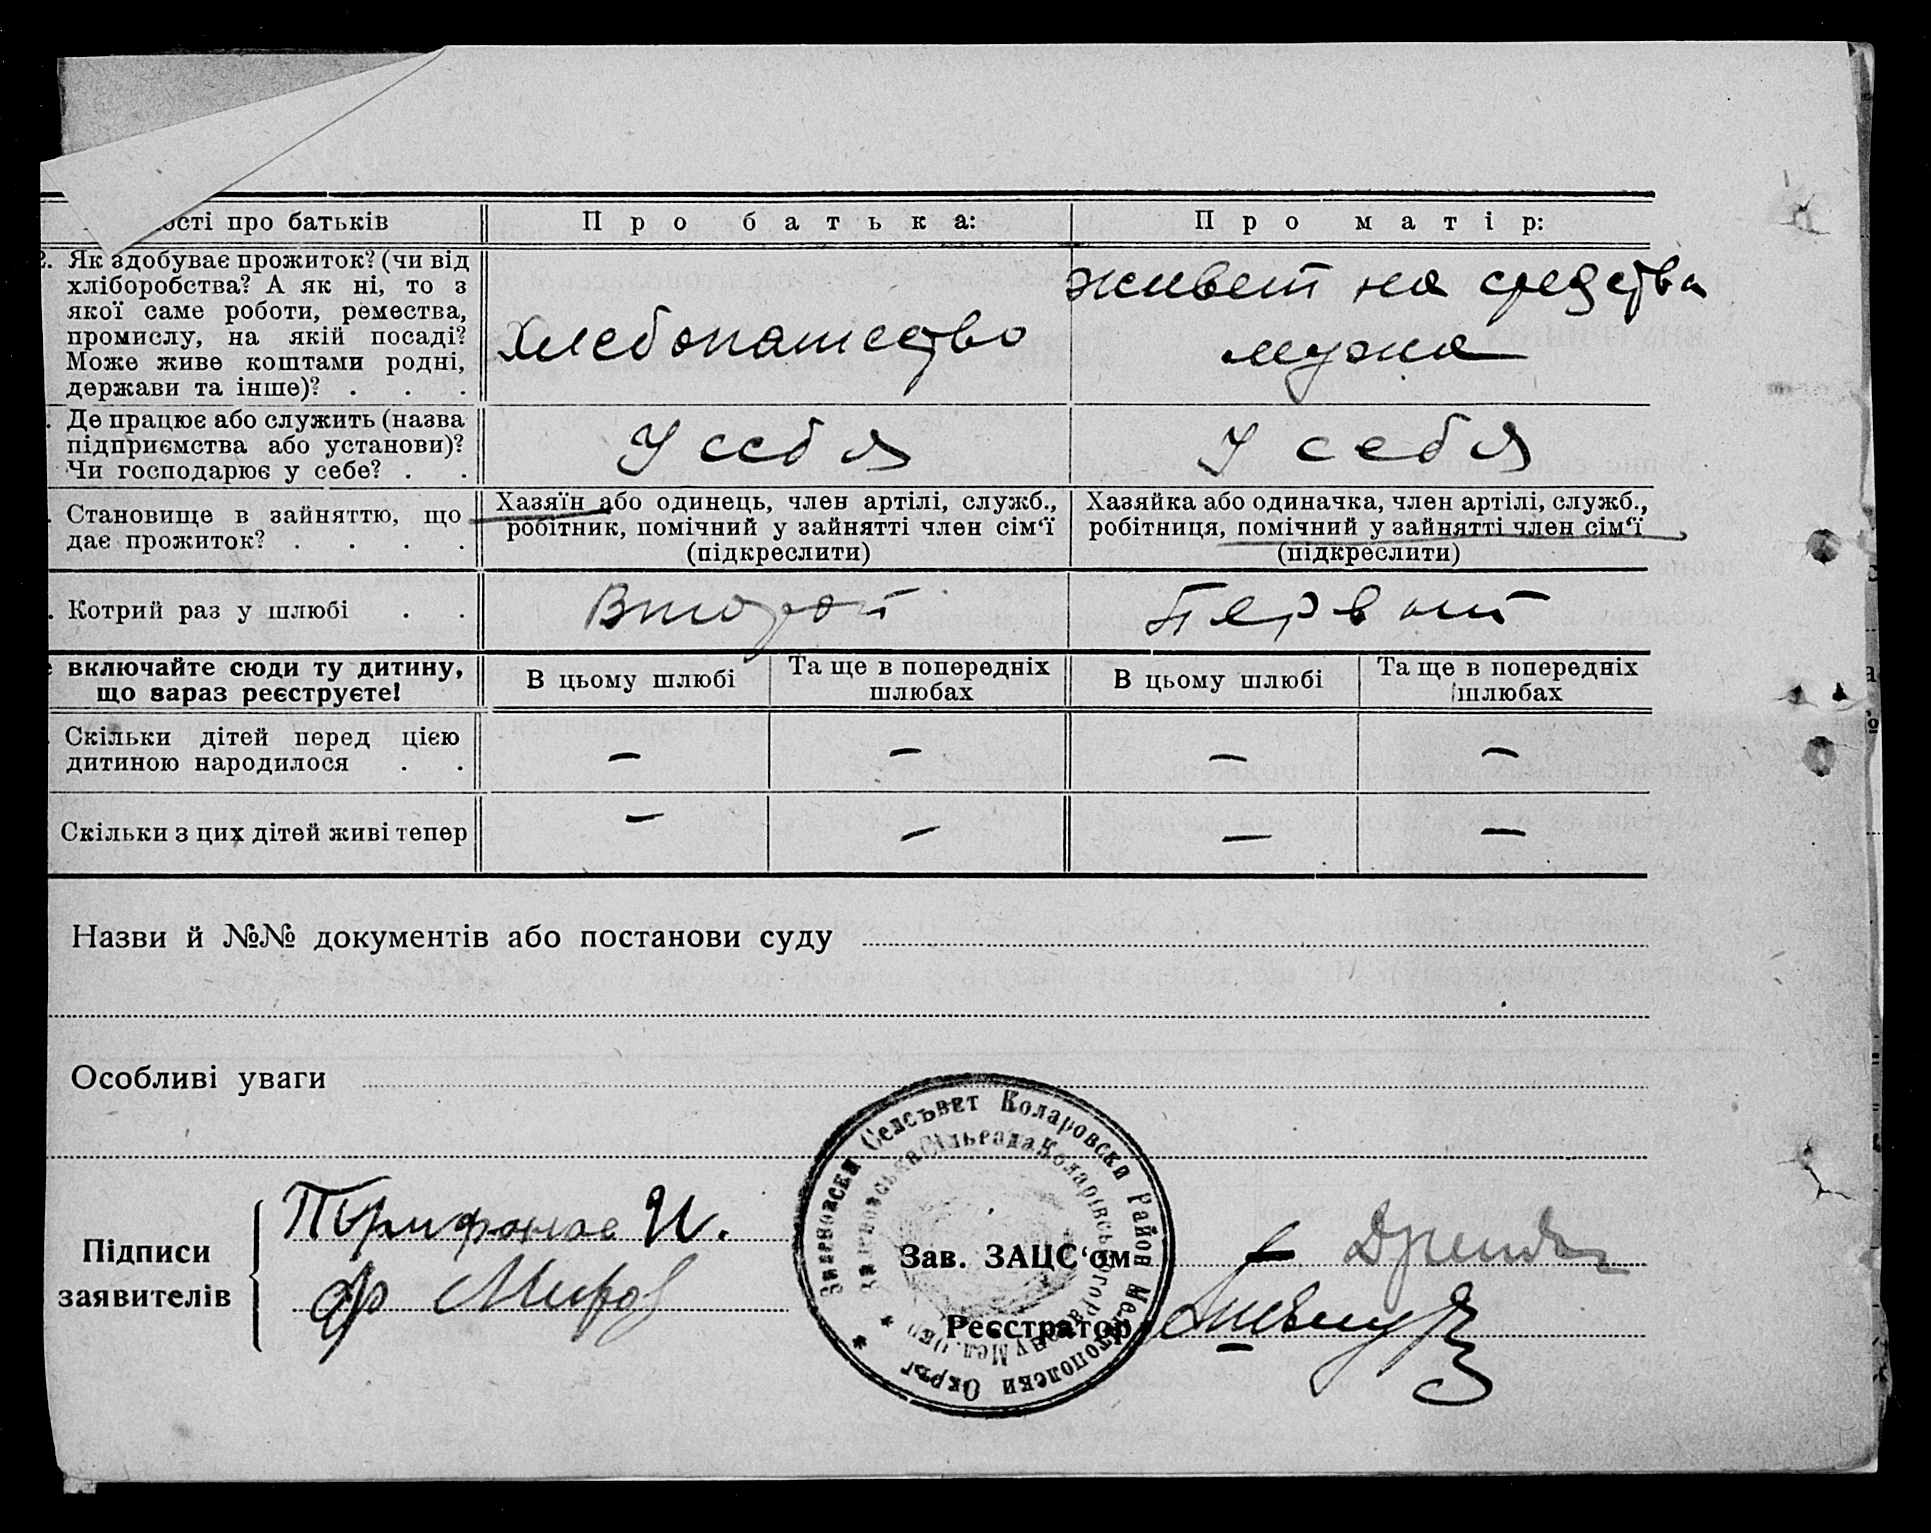 ості про батьків
Про батька:
Про матір:
2. Як здобуває прожиток? (чи від
хліборобства? А як ні, то з
якої саме роботи, ремества,
промислу, на якій посаді?
Може живе коштами родні,
держави та інше)? . . .
Хлебопашество
живет на средства
мужа
. Де працює або служить (назва
підприємства або установи)?
Чи господарює у себе? . .
У себя
У себя
. Становище в зайняттю, що
дає прожиток? . . . .
Хазяїн або одинець, член артілі, служб.,
робітник, помічний у зайнятті член сім'ї
(підкреслити)
Хазяйка або одиначка, член артілі, служб.,
робітниця, помічний у зайнятті член сім'ї
(підкреслити)
. Котрий раз у шлюбі . .
Второй
Первый
е включайте сюди ту дитину,
що зараз реєструєте!
В цьому шлюбі
Та ще в попередніх
шлюбах
В цьому шлюбі
Та ще в попередніх
шлюбах
. Скільки дітей перед цією
дитиною народилося . .
— — — —
Скільки з цих дітей живі тепер
— — — —
Назви й №№ документів або постанови суду
Особливі уваги
Селсъвет Коларовски Район Мелитополски Окръг
Підписи
заявителів
И.
Ф Миров
Зав. ЗАЦС'ом
Реєстратор